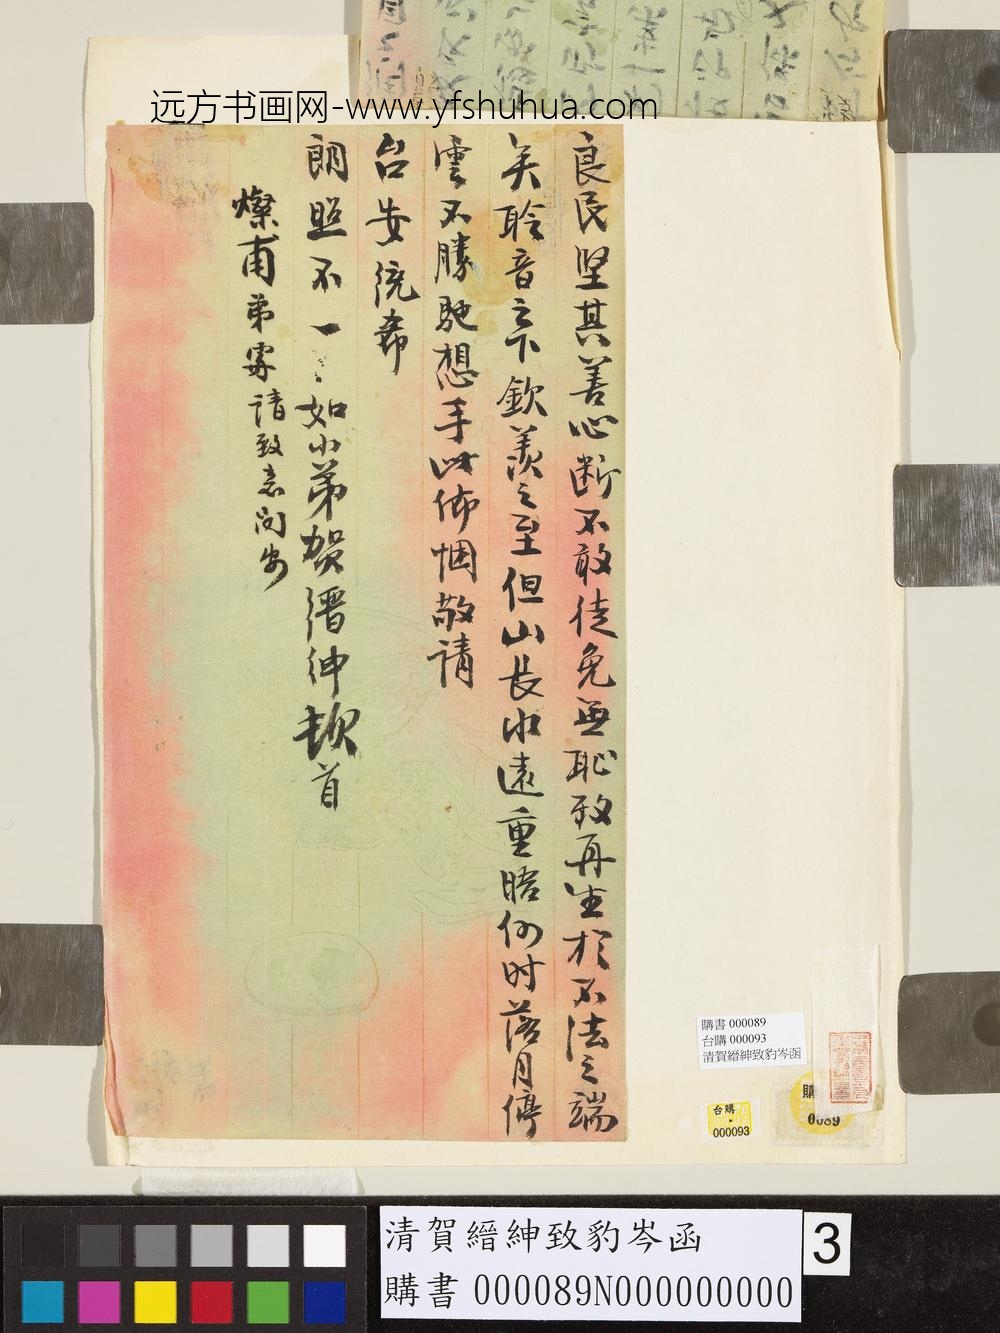 远方书画网-www.yfshuhua.com
良民坚其善心断不敢徒免無恥致再生於不法之端
矣聆音之下欽羨之至但山長水遠重晤何时落月停
雲不勝馳想手此佈悃敬請
台安統希
朗照不一
如小弟賀縉紳頓首
燦甫弟處請致意问安
購書 000089
台購 000093
清賀縉紳致豹岑函
台購
000093
購
0089
清賀縉紳致豹岑函
購書 000089N000000000
3